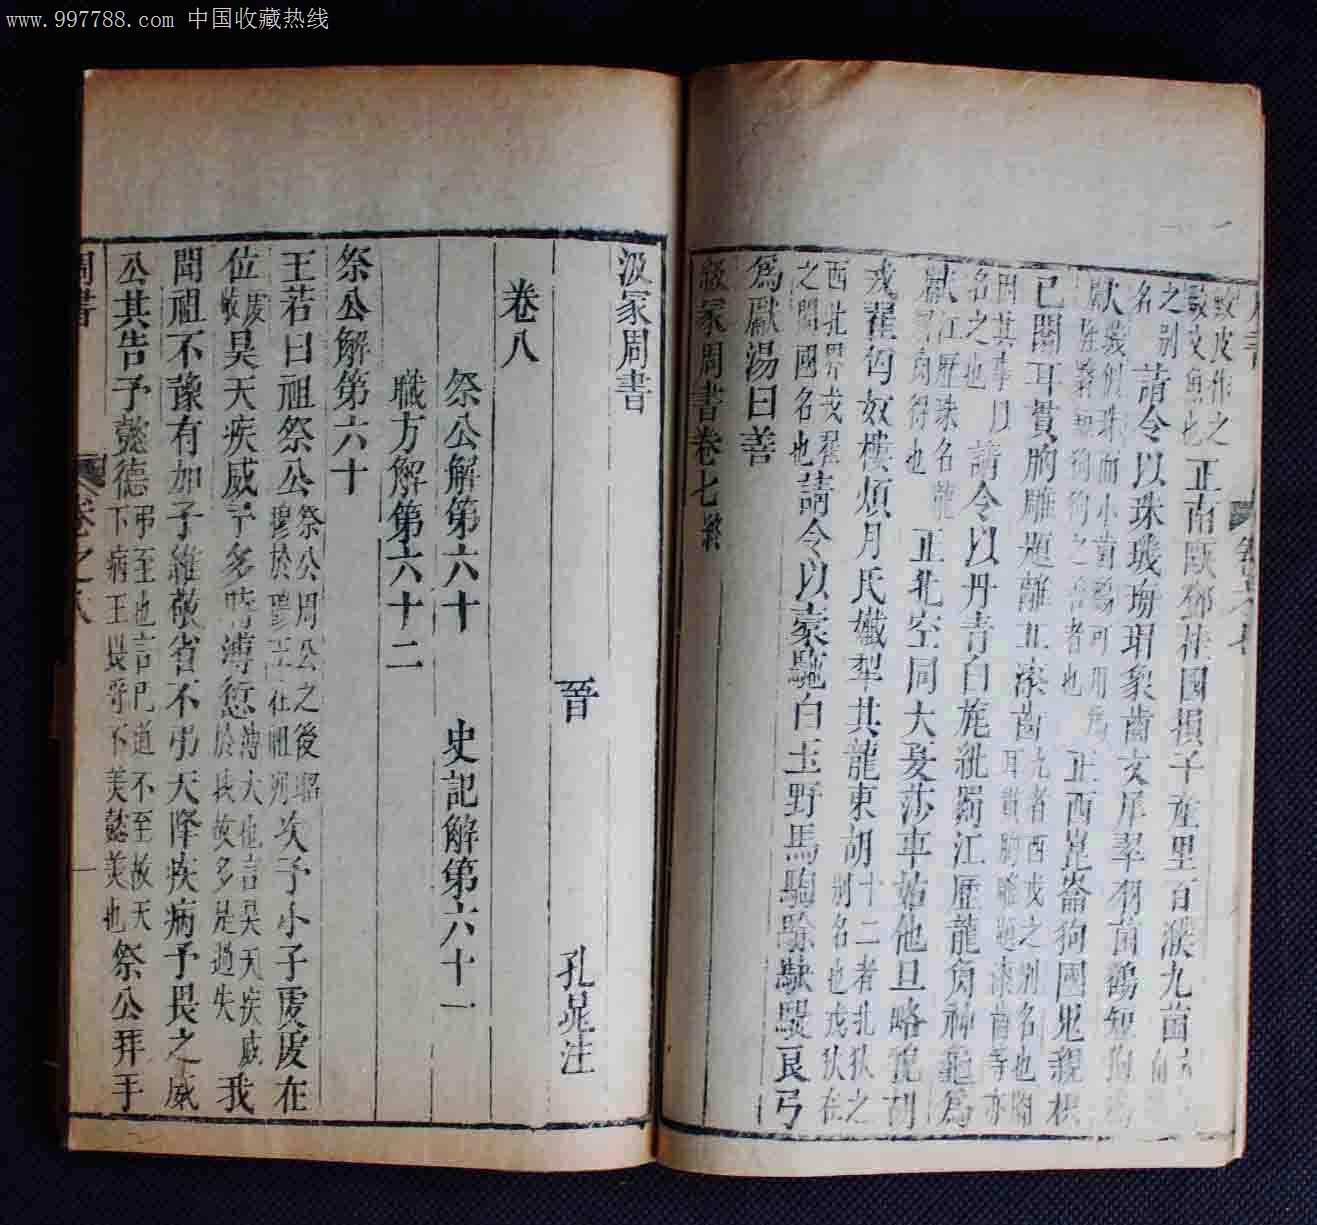 www.997788.com 中国收藏热线
鮫皮作之
鮫文魚也 正南甌鄧桂國損子產里百濮九菌
之別
名 請令以珠璣瑇瑁象齒文犀翠羽菌鶴短狗爲
獻
已闟耳貫胸雕題離丘漆齒
因其事以
名之也 請令以丹青白旄紕罽江歷龍角神龜爲
獻 江歷珠名龍
角得也 正北空同大夏莎車姑他旦略貌胡
戎翟匈奴樓煩月氏孅犁其龍東胡 十二者北狄之
別名也戎狄在
西北界戎翟
之間國名也 請令以橐駞白玉野馬騊駼駃騠良弓
爲獻湯曰善
汲冢周書卷七 終
汲冢周書
晉 孔晁注
卷八
祭公解第六十 史記解第六十一
職方解第六十二
祭公解第六十
王若曰祖祭公 祭公周公之後昭
穆於穆王在祖列 次予小子虔虔在
位 虔
敬 昊天疾威予多時溥愆 溥大也言昊天疾威
於我故多是過失 我
聞祖不豫有加予維敬省不弔天降疾病予畏之威
公其告予懿德 弔至也言已道不至故天
下病王畏守不美懿美也 祭公拜手
周書 卷之八